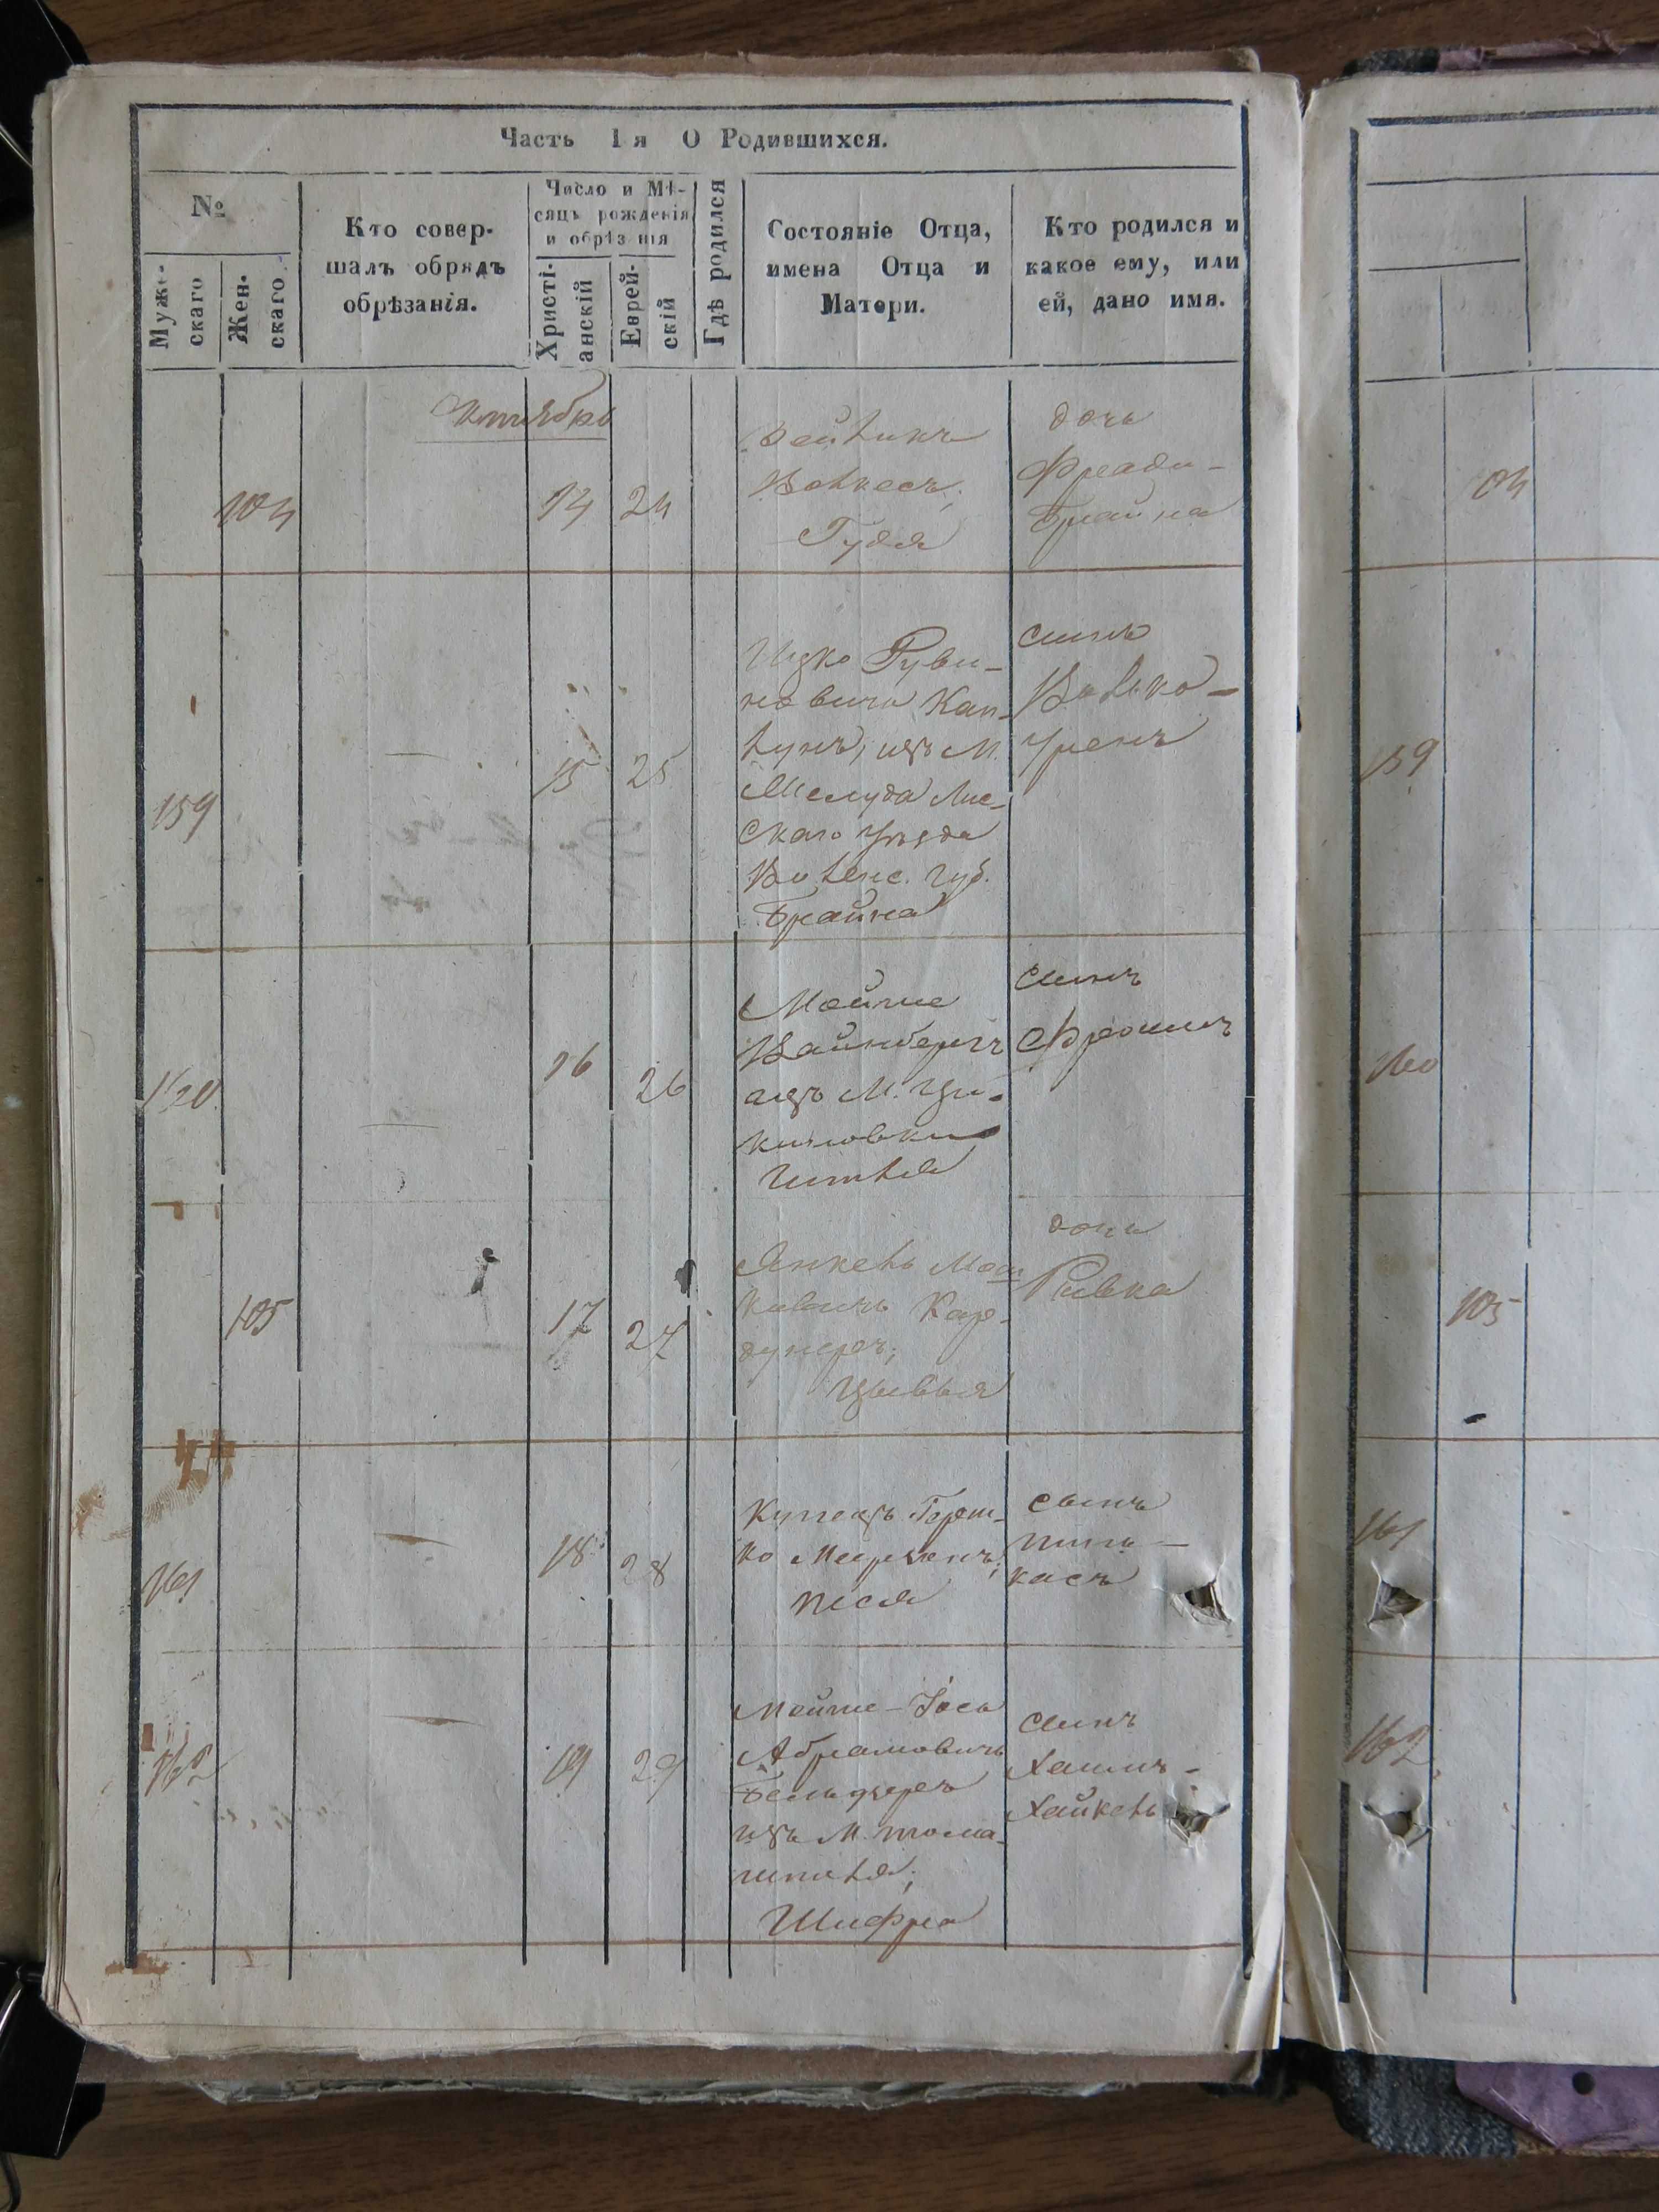 Часть 1я О Родившихся.
№
Муже-
скаго
Жен-
скаго.
Кто совер-
шалъ обрядъ
обрѣзанія.
Число и Мѣ-
сяцъ рожденія
и обрѣзанія
Христі-
анскій
Еврей-
скій
Гдѣ родился
Состояніе Отца,
имена Отца и
Матери.
Кто родился и
какое ему, или
ей, дано имя.
Октябрь
104
14
24
Волкесъ;
Гудя
дочь
Фреади-
Брайна
04
159
15
25
Ицко Руви-
новичъ Кап-
лунъ, изъ М.
Скаго Уѣзда
Волынс. Губ.
Брайна
сынъ
Волько-
159
16
26
Мойше
Вайнбергъ
изъ М. Цы-
киновки
Гитля
сынъ
Фроимъ
160
105
17
27
Янкель Мош-
ковичъ Кар-
дунеръ;
Цывья
дочь
Ривка
105
161
18
28
Купецъ Герш-
ко
Песя
сынъ
Пинь-
касъ
161
162
19
29
Мойше-Іось
Абрамовичъ
изъ М. Тома-
шполя;
Шифра
сынъ
Хаимъ-
Хайкель
162